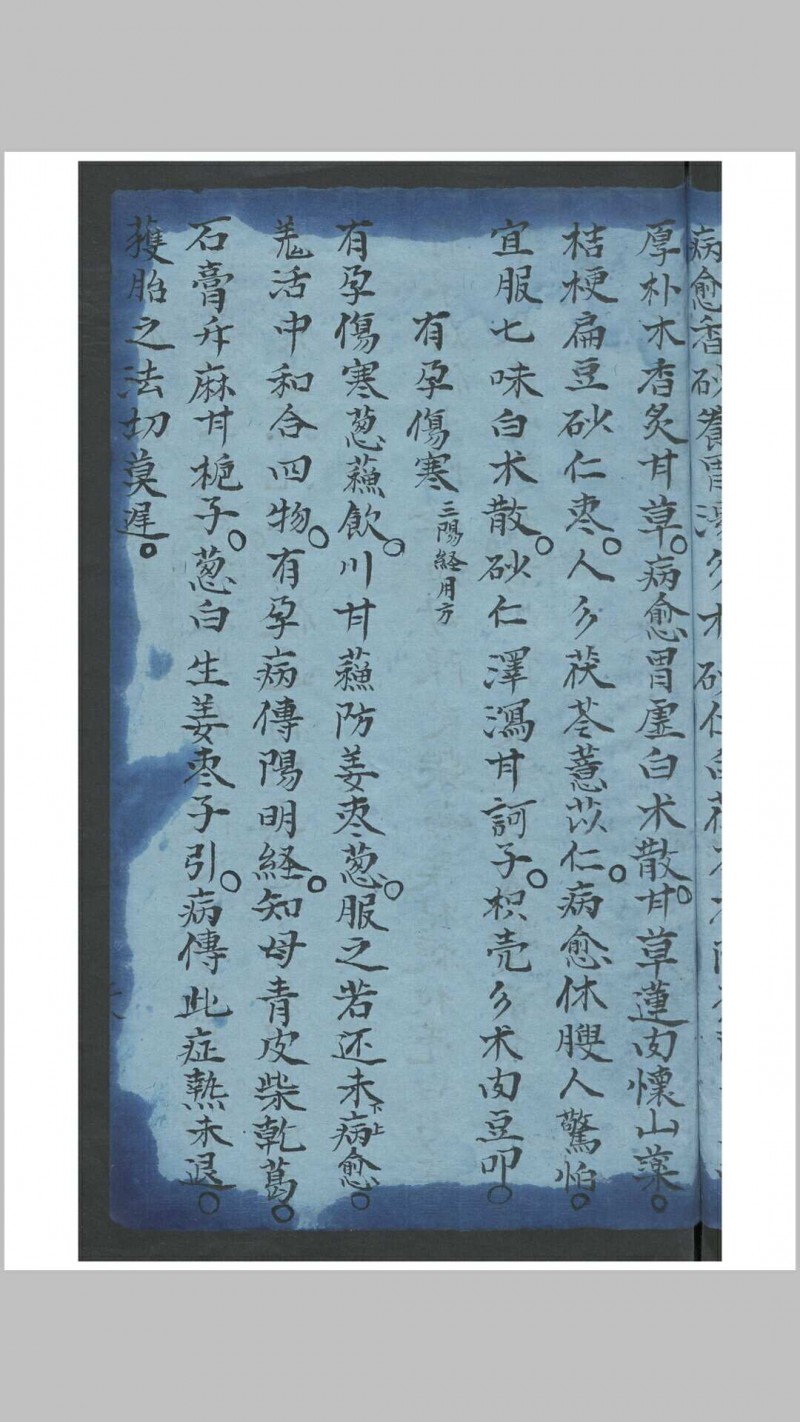 病愈香砂養胃湯
厚朴木香炙甘草病愈胃虛白术散甘草蓮肉懷山藥
桔梗扁豆砂仁枣人參茯苓薏苡仁病愈休瞍人驚怕
宜服七味白术散砂仁澤瀉甘訶子枳壳㕥术肉豆叩
有孕傷寒三陽経月方
有孕傷寒葱蘓飲川甘蘓防姜枣葱服之若还未病愈下上
羗活中和合四物有孕病傳陽明経知母青皮柴乾葛
石膏升麻甘栀子葱白生姜枣子引病傳此症熱未退
䕶胎之法切莫遲